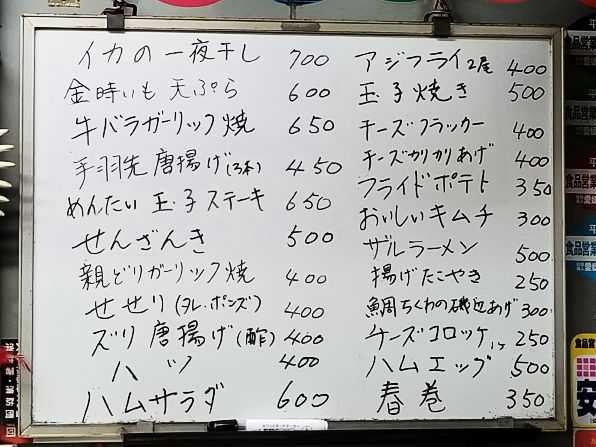 イカの一夜干し 700
金時いも天ぷら 600
牛バラガーリック焼 650
手羽先唐揚げ(3本) 450
めんたい玉子ステーキ 650
せんざんき 500
親どりガーリック焼 400
せせり(タレ・ポンズ) 400
ズリ唐揚げ(酢) 400
ハツ 400
ハムサラダ 600
アジフライ2尾 400
玉子焼き 500
チーズクラッカー 400
チーズカリカリあげ 400
フライドポテト 350
おいしいキムチ 300
ザルラーメン 500
揚げたこやき 250
鯛ちくわの磯辺あげ 300
チーズコロッケ1ヶ 250
ハムエッグ 500
春巻 350
食品営業
食品営業
食品営業
安